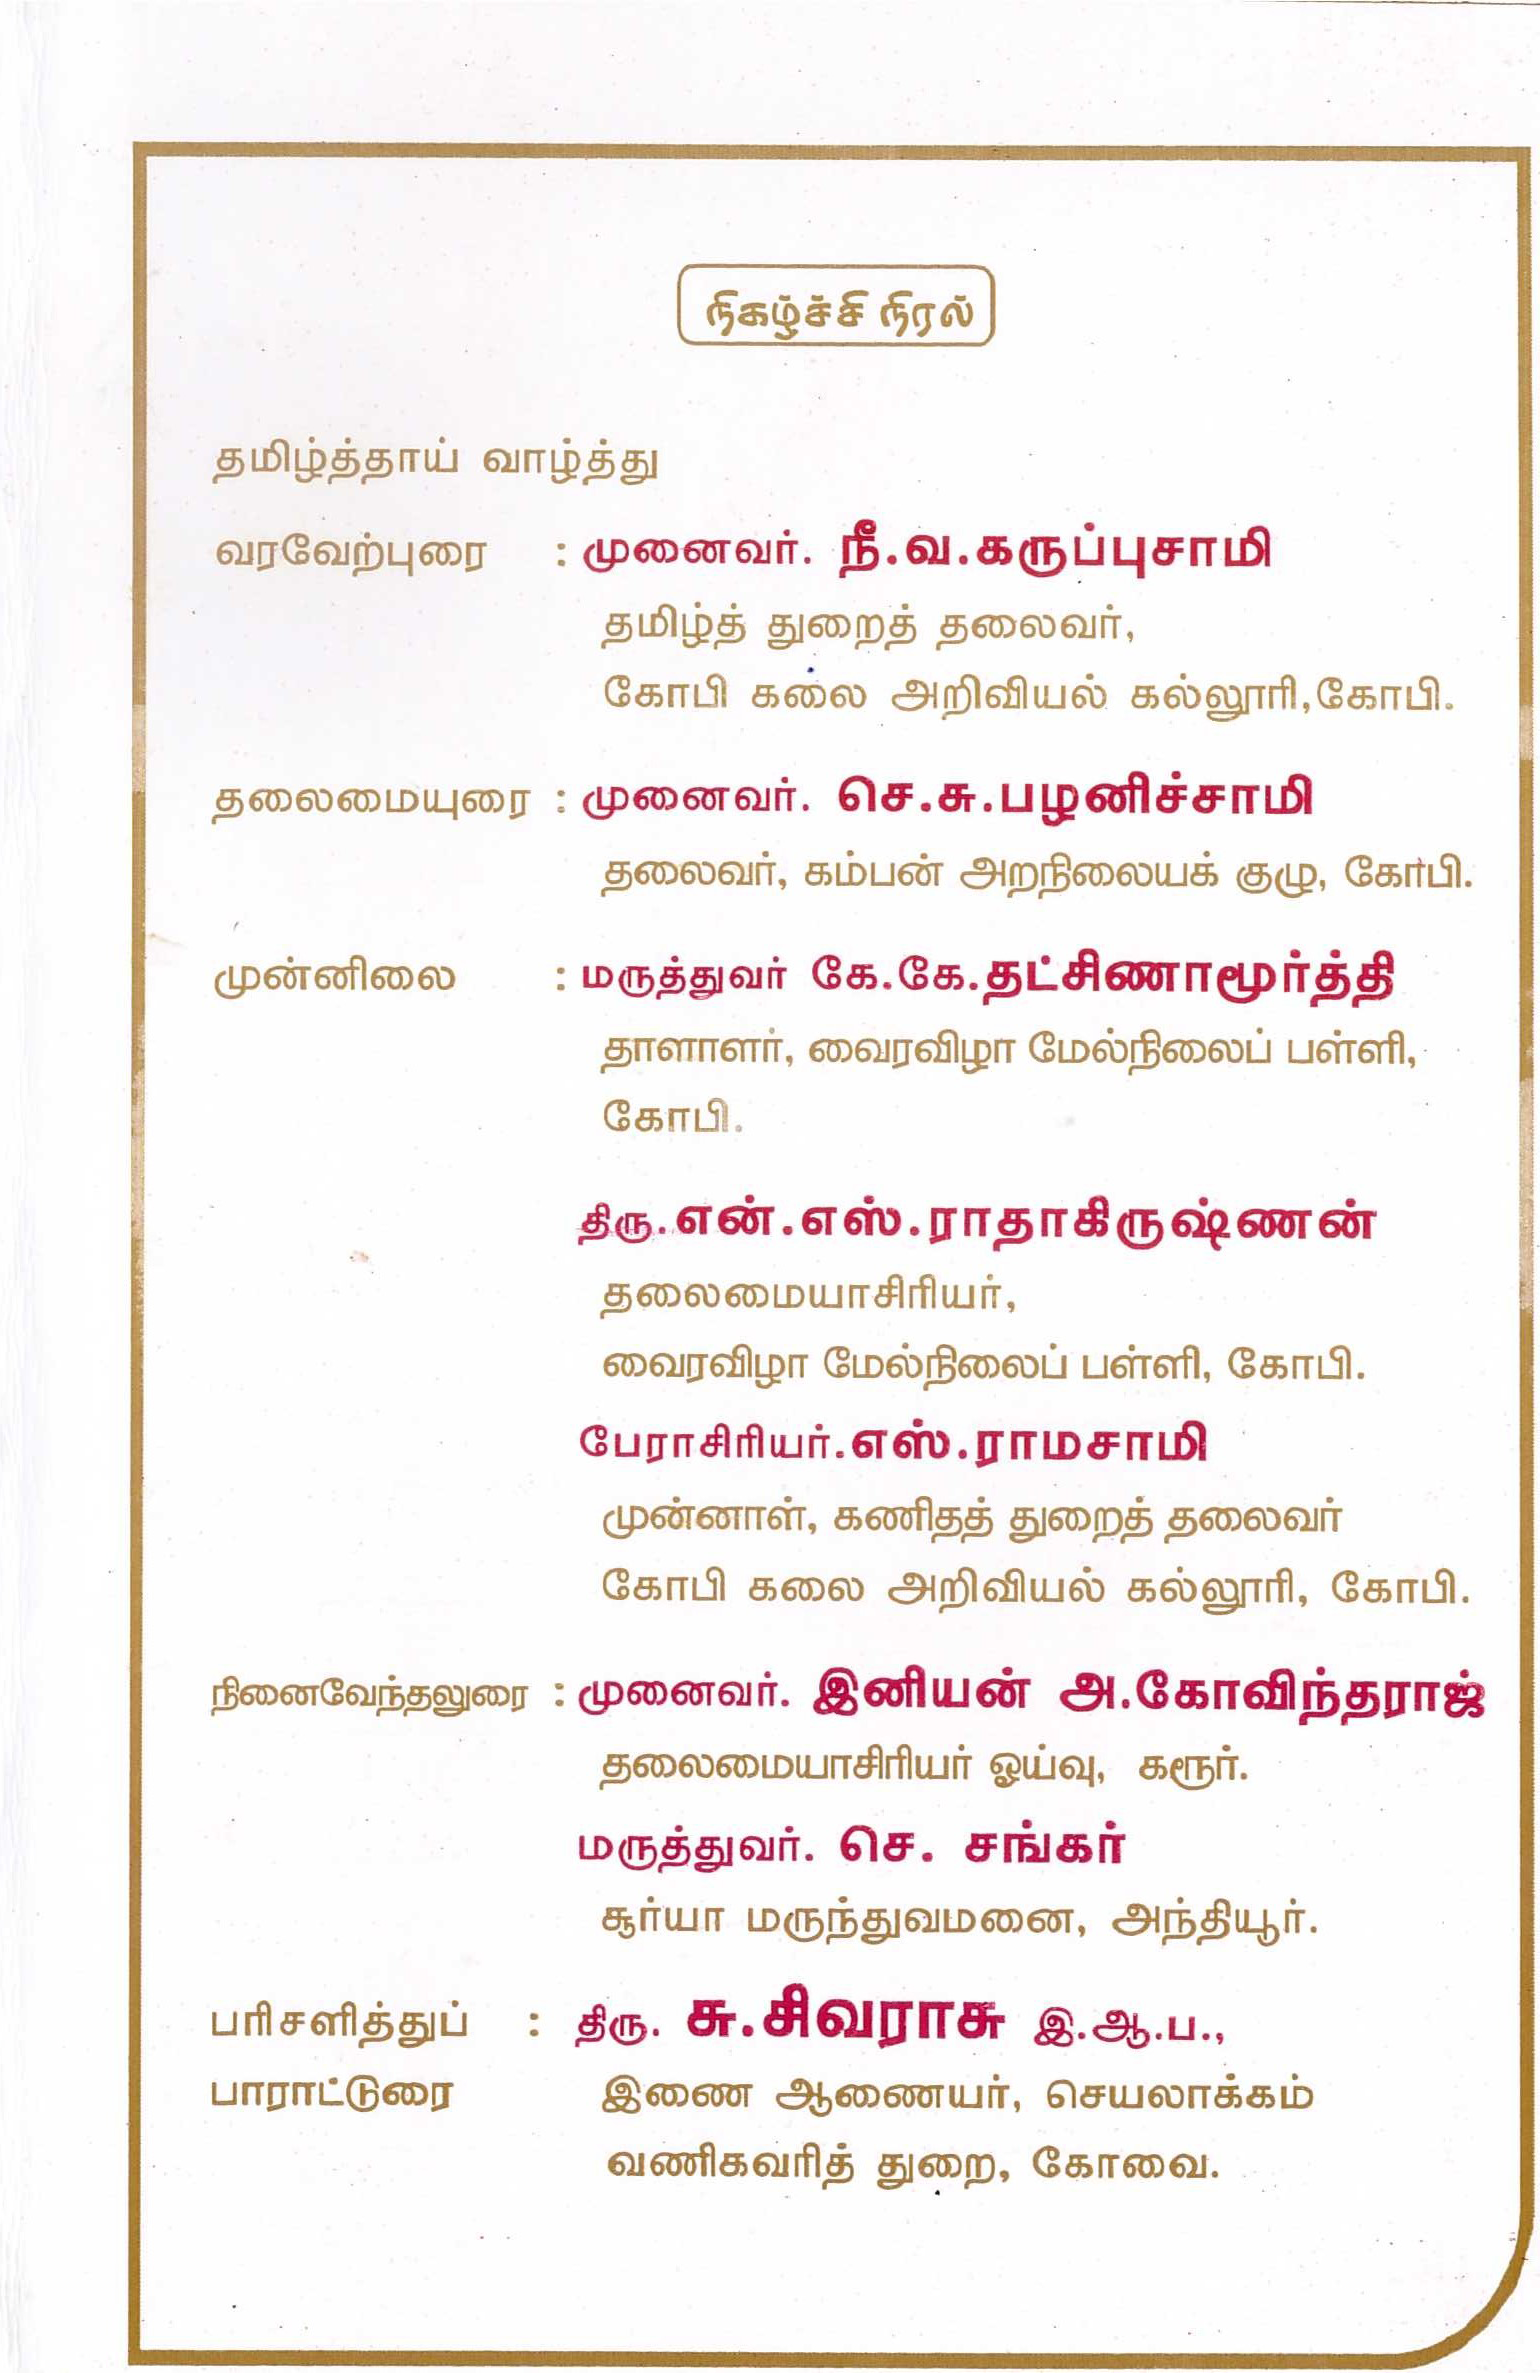 நிகழ்ச்சி நிரல்
தமிழ்த்தாய் வாழ்த்து
வரவேற்புரை : முனைவர். நீ.வ.கருப்புசாமி
தமிழ்த் துறைத் தலைவர்,
கோபி கலை அறிவியல் கல்லூரி,கோபி.
தலைமையுரை : முனைவர். செ.சு.பழனிச்சாமி
தலைவர், கம்பன் அறநிலையக் குழு, கோபி.
முன்னிலை : மருத்துவர் கே.கே.தட்சிணாமூர்த்தி
தாளாளர், வைரவிழா மேல்நிலைப் பள்ளி,
கோபி.
திரு.என்.எஸ்.ராதாகிருஷ்ணன்
தலைமையாசிரியர்,
வைரவிழா மேல்நிலைப் பள்ளி, கோபி.
பேராசிரியர்.எஸ்.ராமசாமி
முன்னாள், கணிதத் துறைத் தலைவர்
கோபி கலை அறிவியல் கல்லூரி, கோபி.
நினைவேந்தலுரை : முனைவர். இனியன் அ.கோவிந்தராஜ்
தலைமையாசிரியர் ஓய்வு, கரூர்.
மருத்துவர். செ. சங்கர்
சூர்யா மருந்துவமனை, அந்தியூர்.
பரிசளித்துப் : திரு. சு.சிவராசு இ.ஆ.ப.,
பாராட்டுரை இணை ஆணையர், செயலாக்கம்
வணிகவரித் துறை, கோவை.